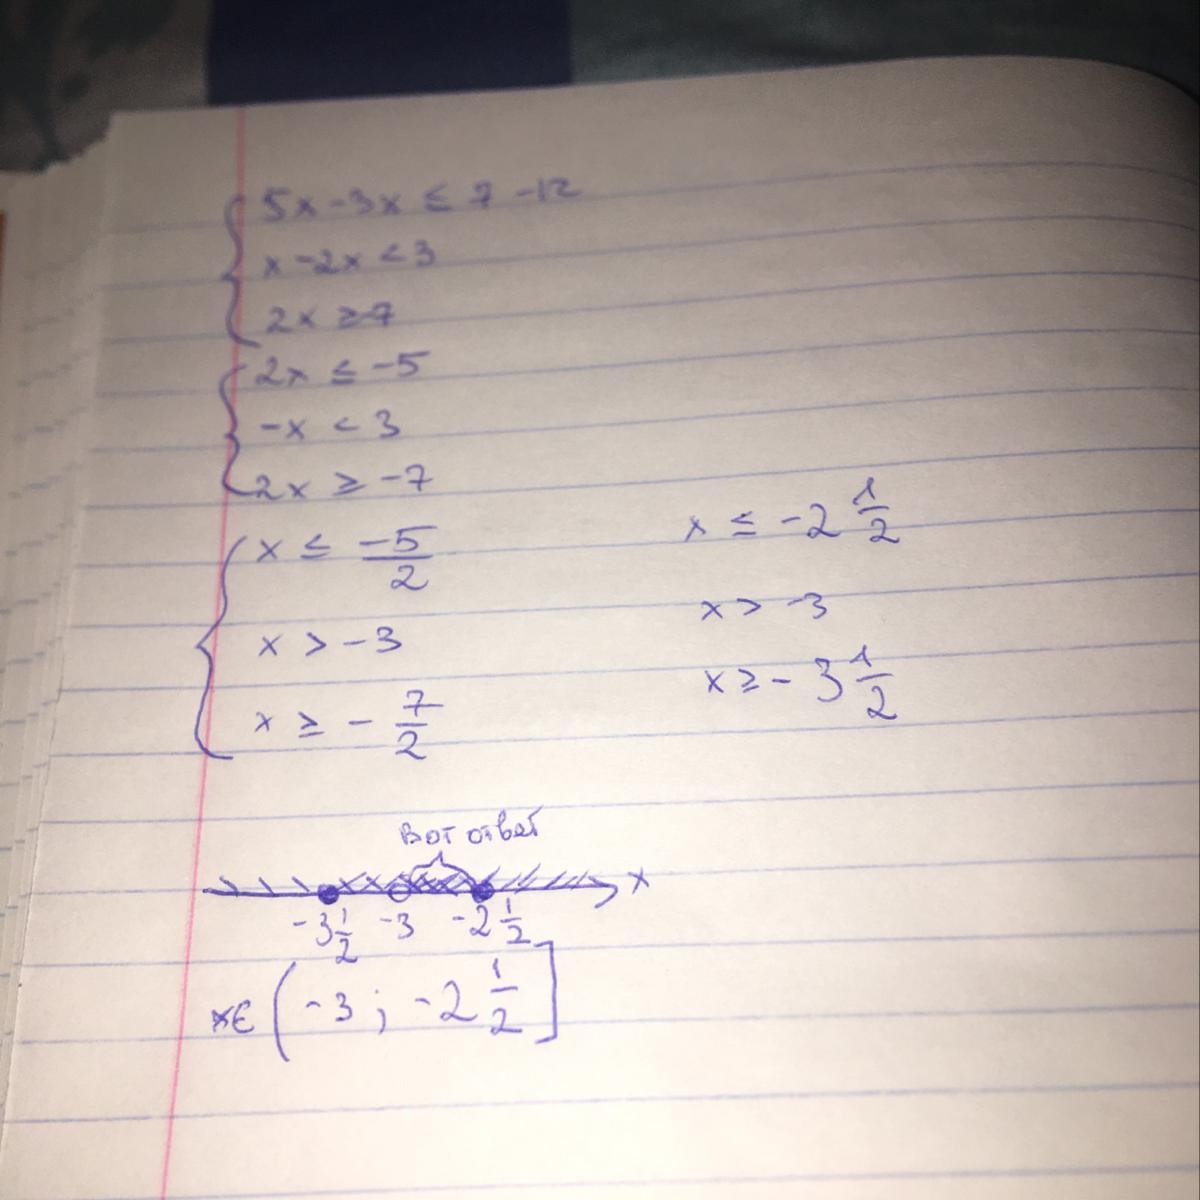 5x - 3x ≤ 7 - 12
x - 2x < 3
2x ≥ -7
2x ≤ -5
-x < 3
2x ≥ -7
x ≤ -5/2 x ≤ -2 1/2
x > -3 x > -3
x ≥ - 7/2 x ≥ - 3 1/2
Вот ответ
x
-3 1/2 -3 -2 1/2
x∈ (-3 ; -2 1/2]